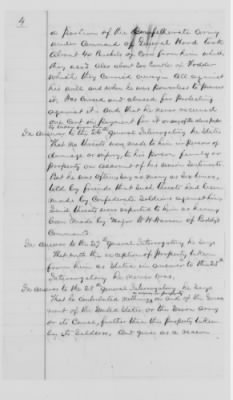 4
a portion of the Confederate Army
under Command of General Hood took
about 40 Bushels of Corn from him which
they used. Also about two stacks of Fodder
which they carried away. All against
his will and when he was powerless to prevent
it. He cursed and abused for protesting
against it. And that he never received
one cent in payment for it
In answer to the 26th General Interrogatory he states
That no threats were made to him in person of
damage or injury to his person, family or
property on account of his Union Sentiments
But he was often, say as many as six times,
told by friends that such threats had been
made by Confederate Soldiers against him
Said threats were reported to him as having
been made by Major W. H. Hanson of Roddy's
Command.
In answer to the 27th General Interrogatory he says
That with the exception of property taken
from him as stated in answer to the 25th
Interrogatory he never was.
In answer to the 28th General Interrogatory he says
That he contributed nothing in aid of the Government
of the United States or the Union Army
or its Cause, further than the property taken
by its Soldiers. And gives as a reason